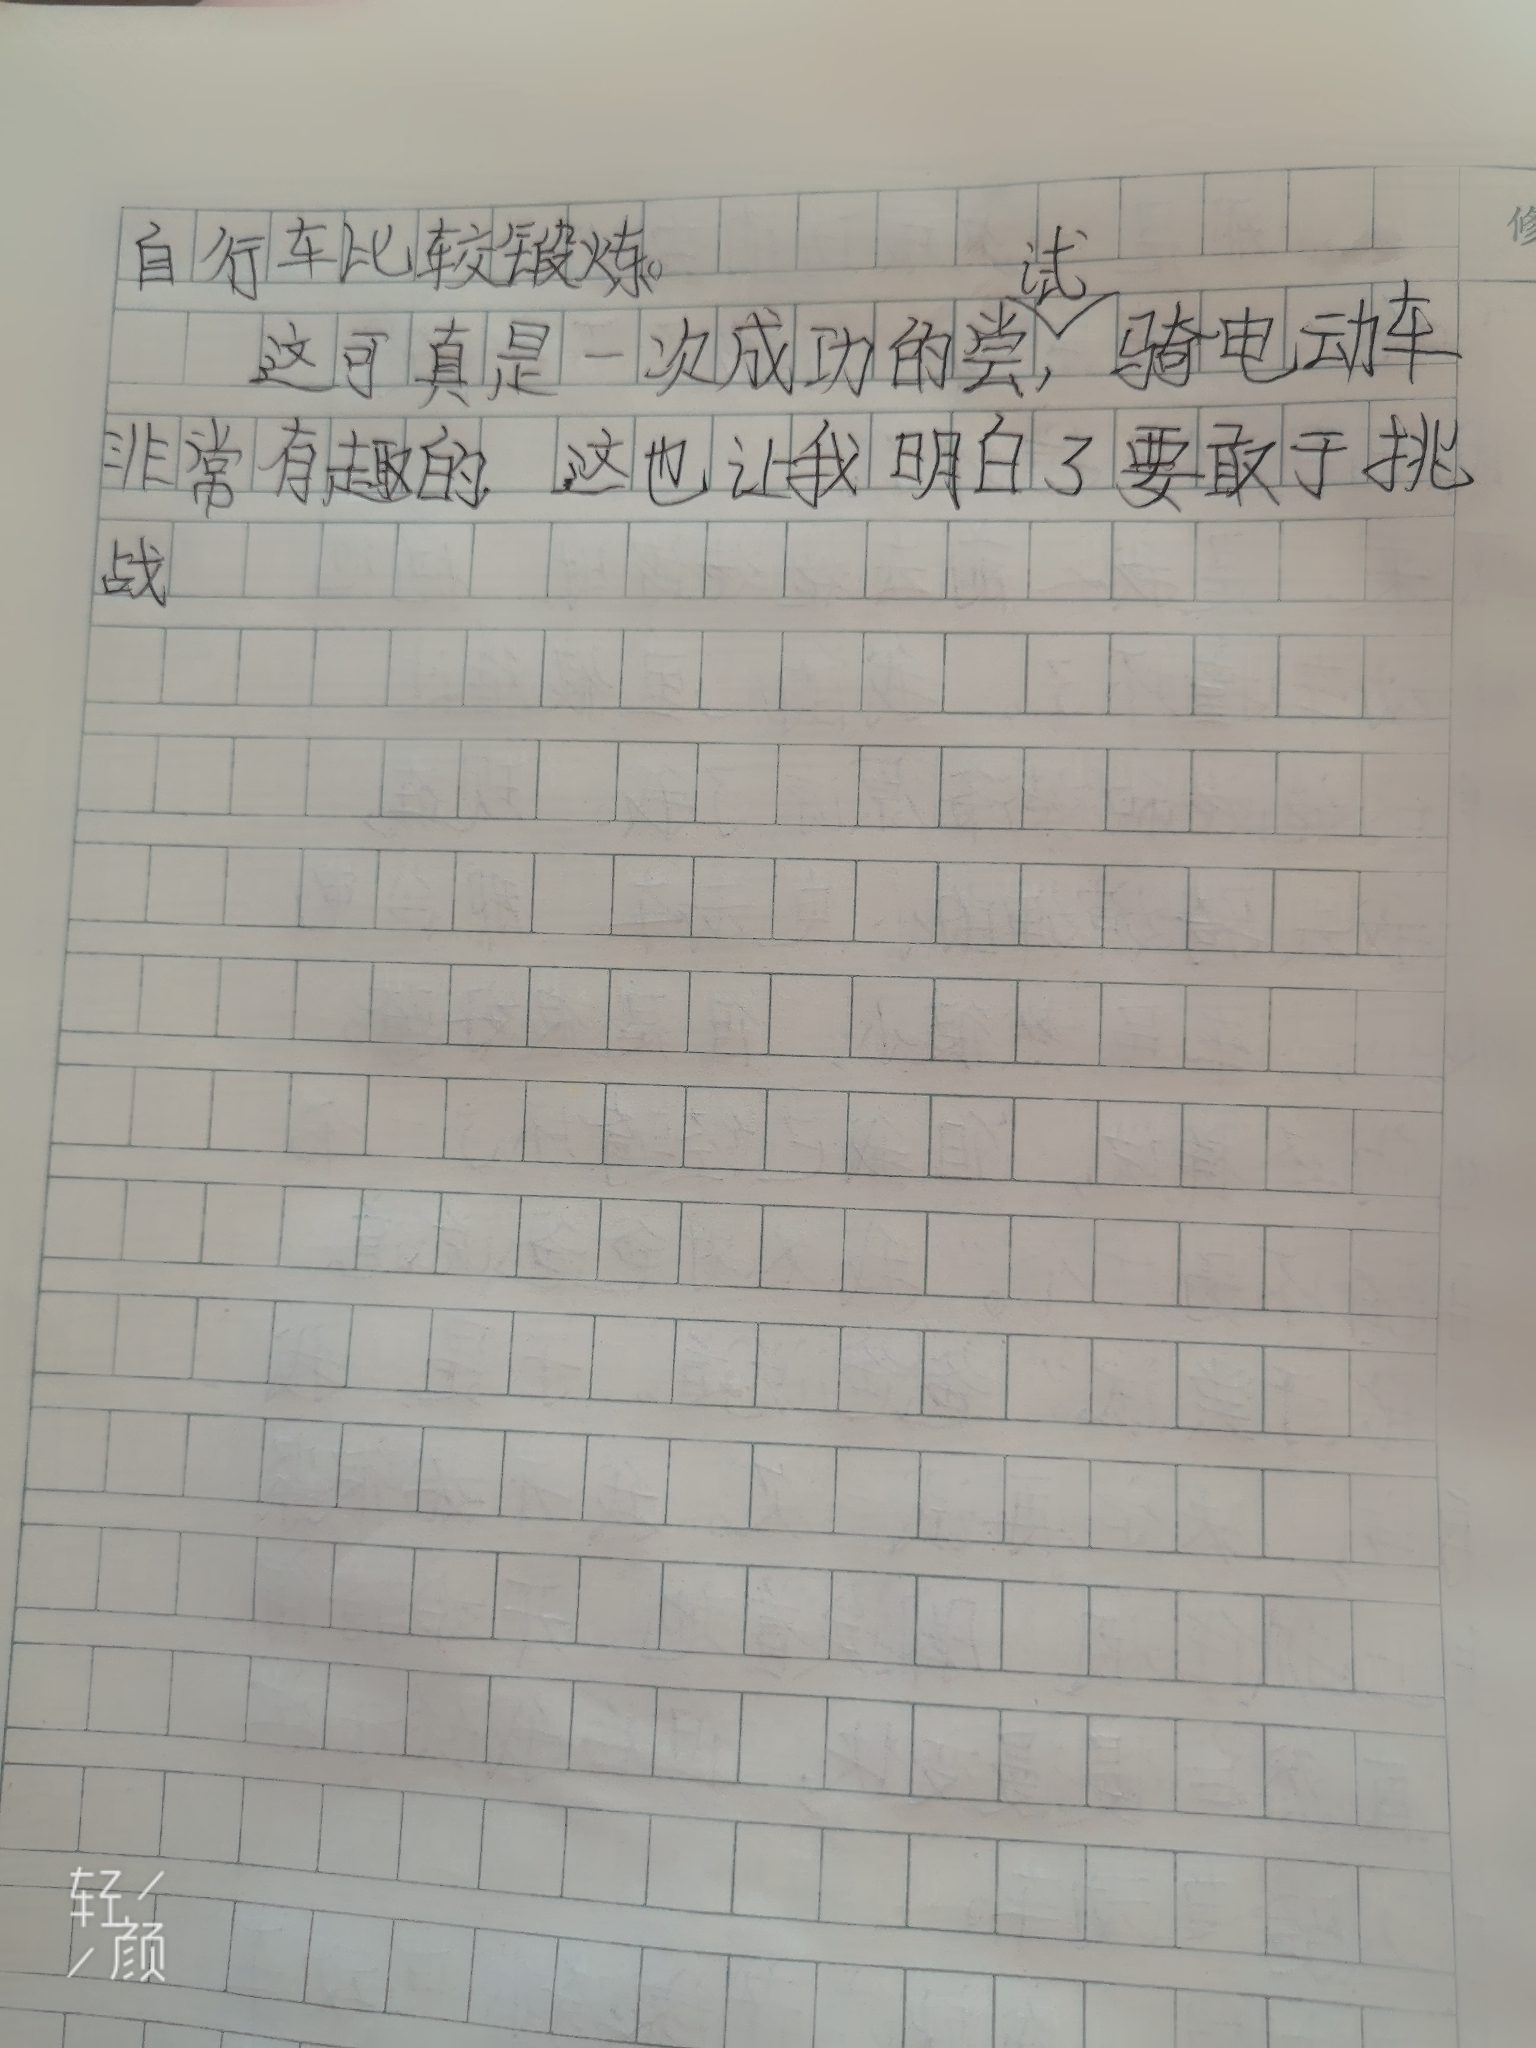 自行车比较锻炼。
这可真是一次成功的尝试，骑电动车
非常有趣的 这也让我明白了要敢于挑
战
修
轻颜